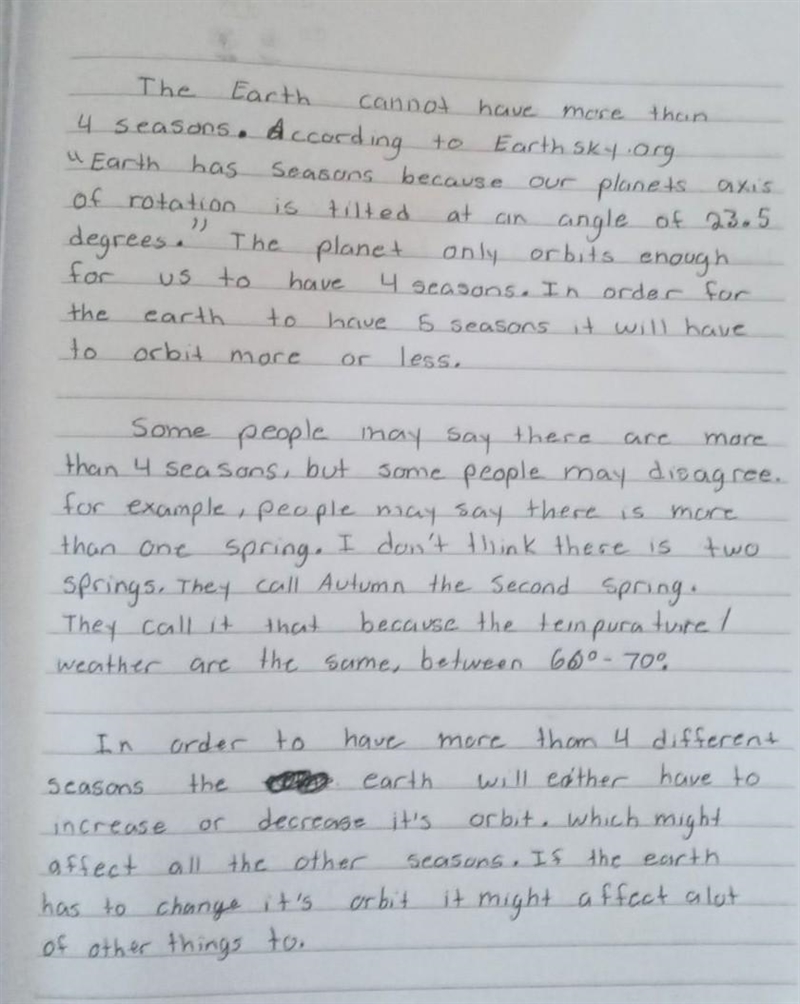 The Earth cannot have more than
4 seasons. According to Earthsky.org
"Earth has seasons because our planets axis
of rotation is tilted at an angle of 23.5
degrees." The planet only orbits enough
for us to have 4 seasons. In order for
the earth to have 5 seasons it will have
to orbit more or less.
Some people may say there are more
than 4 seasons, but some people may disagree.
for example, people may say there is more
than one spring. I don't think there is two
springs. They call Autumn the second spring.
They call it that because the tempurature/
weather are the same, between 60°-70°.
In order to have more than 4 different
seasons the earth will either have to
increase or decrease it's orbit. which might
affect all the other seasons. If the earth
has to change it's orbit it might affect alot
of other things to.